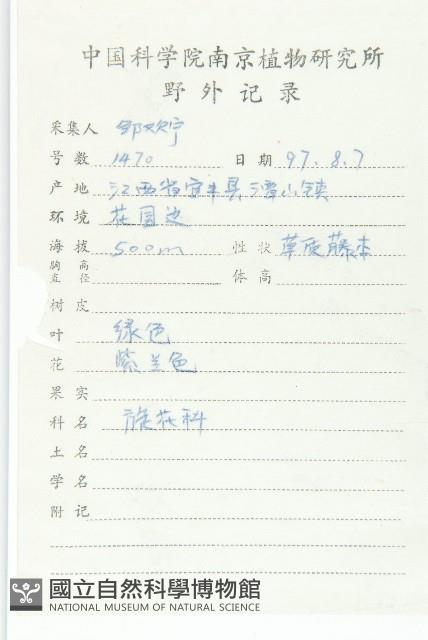 中国科学院南京植物研究所
野外记录
采集人 邹欢宁
号数 1470 日期 97.8.7
产地 江西省宜丰县潭山镇
环境 花园边
海拔 500m 性状 草质藤本
胸高直径 体高
树皮
叶 绿色
花 紫兰色
果实
科名 旋花科
土名
学名
附记
國立自然科學博物館
NATIONAL MUSEUM OF NATURAL SCIENCE